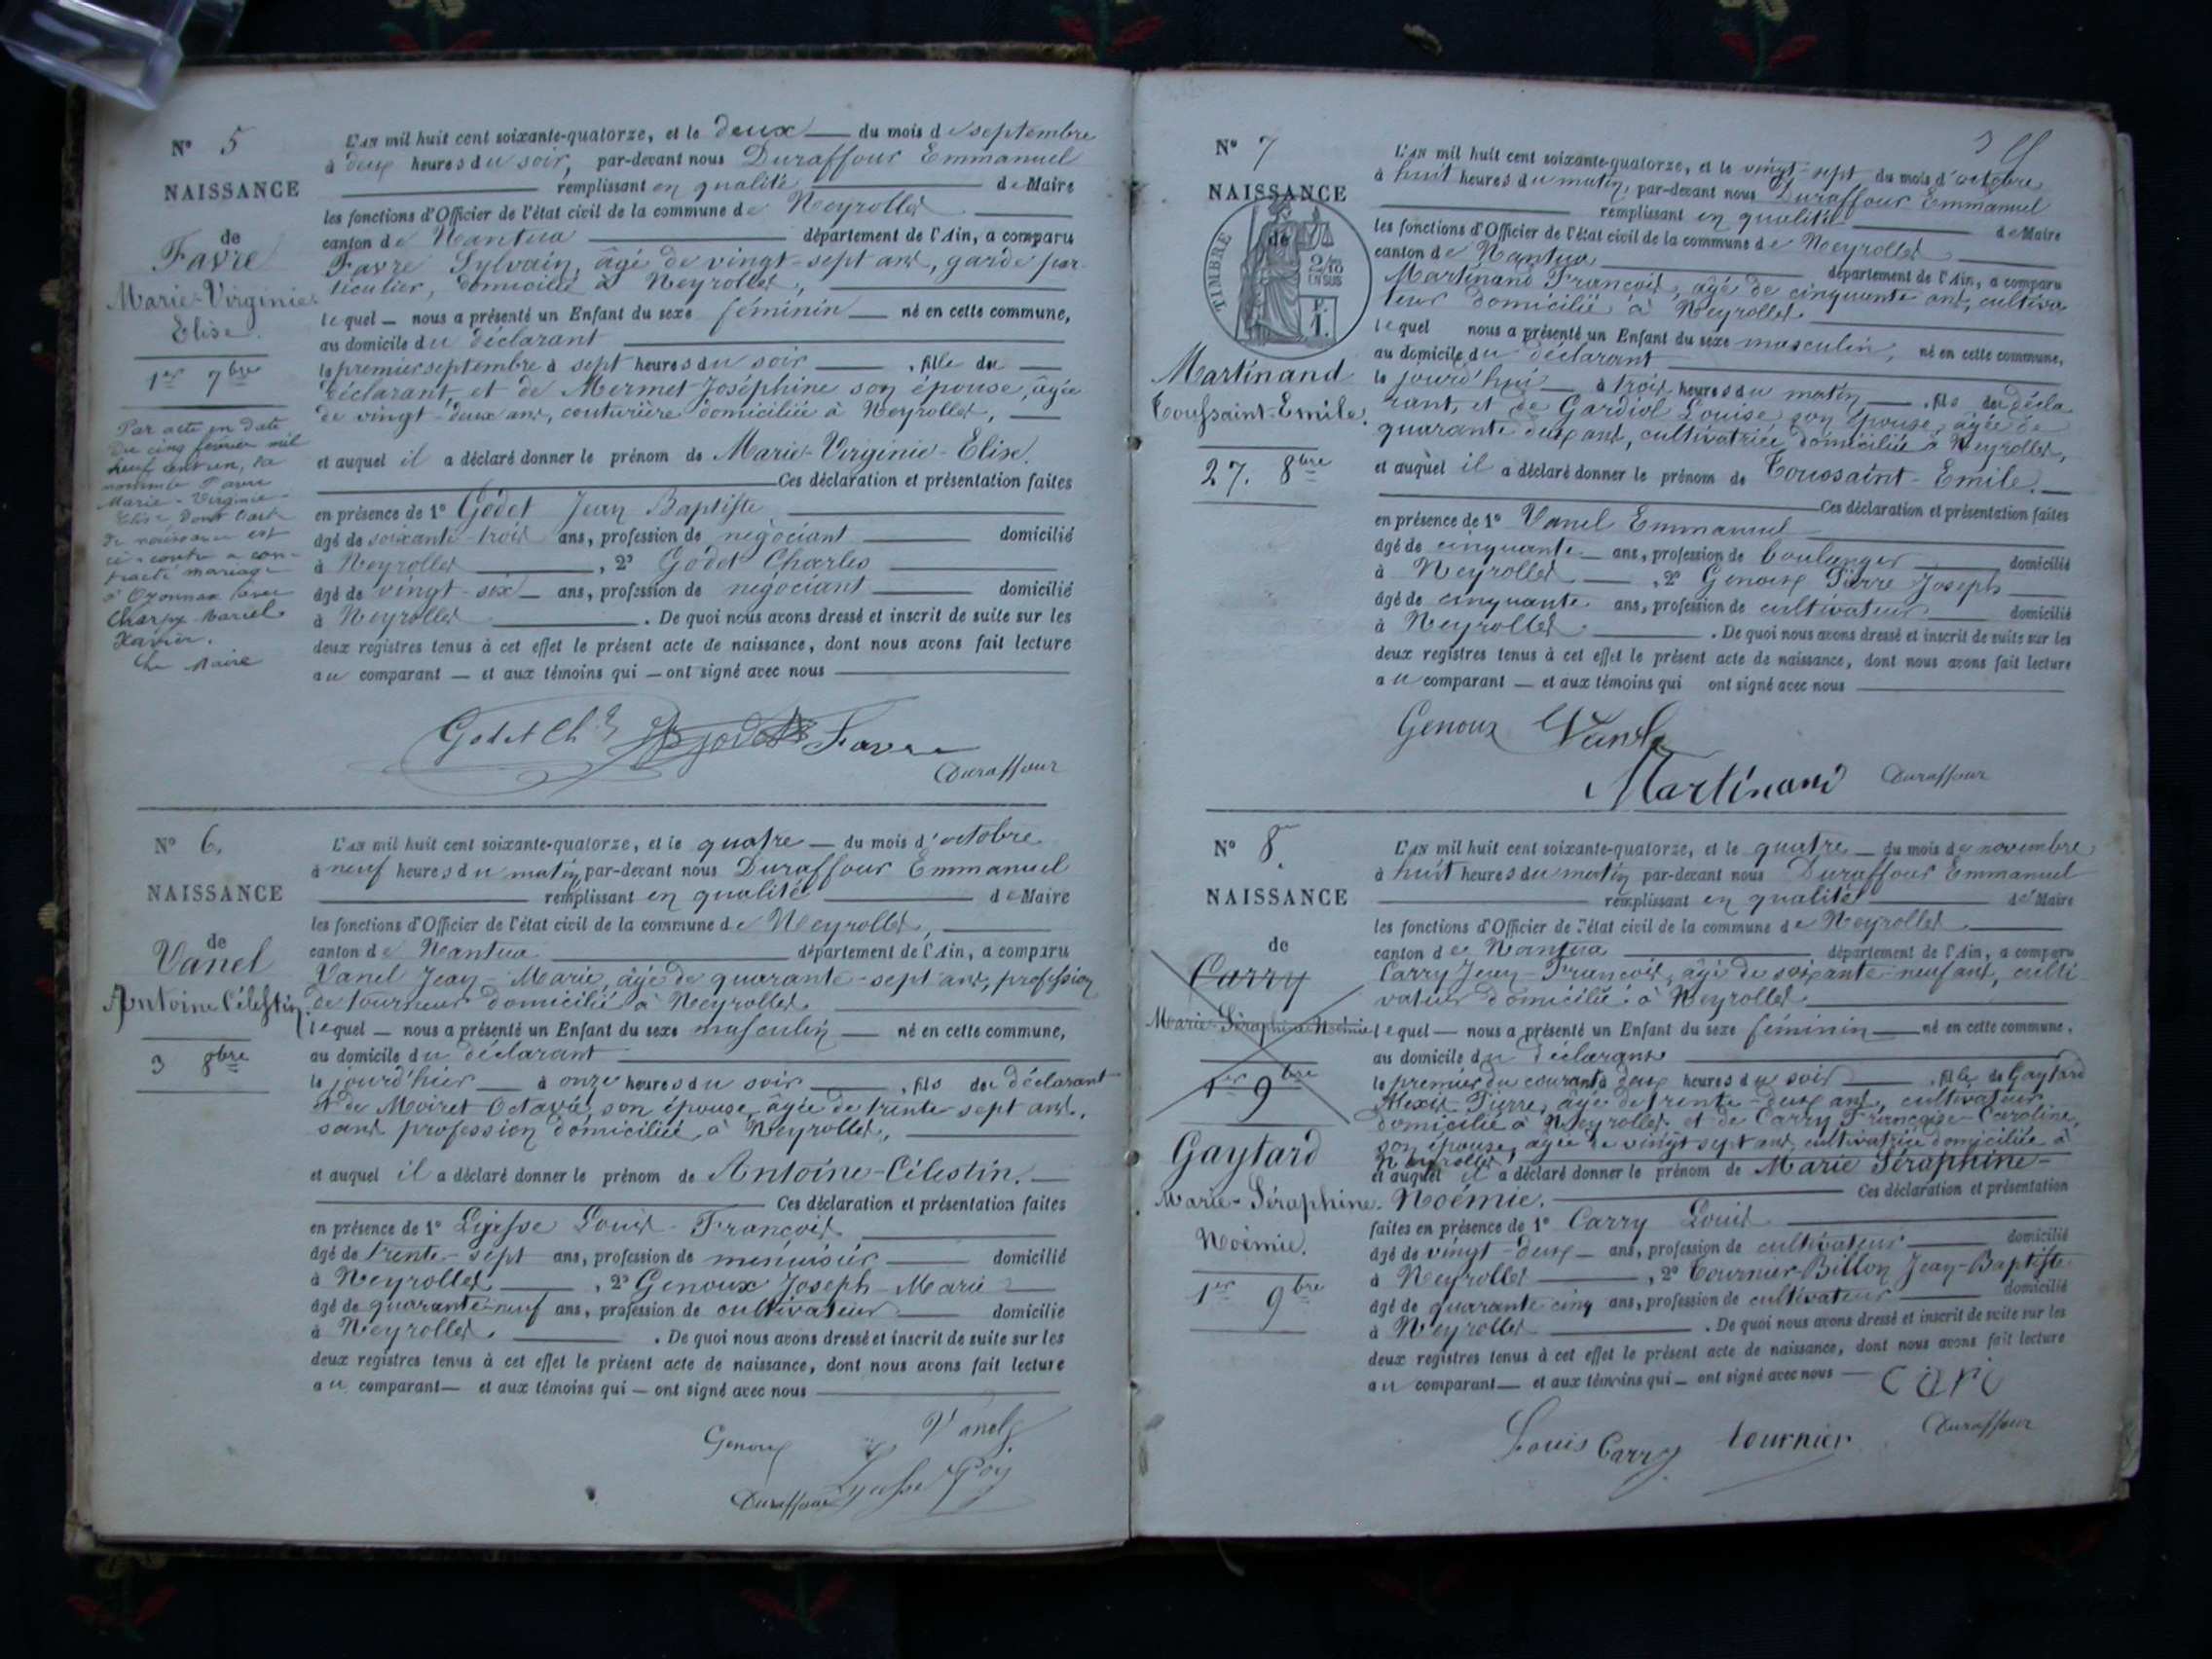 N° 5
NAISSANCE
de
Favre
Marie-Virginie
Elise.
1er 7bre
Par acte en date
du cinq février mil
neuf cent un, la
nommée Favre
Marie-Virginie-
Elise dont l'acte
de naissance est
ci-contre a con-
tracté mariage
à Oyonnax avec
Charpy Marcel
Xavier.
Le Maire
L'AN mil huit cent soixante-quatorze, et le deux du mois de septembre
à deux heures du soir, par-devant nous Duraffour Emmanuel
remplissant en qualité de Maire
les fonctions d'Officier de l'état civil de la commune de Neyrolles
canton de Nantua département de l'Ain, a comparu
Favre Sylvain, âgé de vingt-sept ans, garde par-
ticulier, domicilié à Neyrolles,
lequel nous a présenté un Enfant du sexe féminin né en cette commune,
au domicile du déclarant
le premier septembre à sept heures du soir, fille du
déclarant, et de Mermet Joséphine son épouse, âgée
de vingt-deux ans, couturière domiciliée à Neyrolles,
et auquel il a déclaré donner le prénom de Marie-Virginie-Elise.
Ces déclaration et présentation faites
en présence de 1° Godet Jean Baptiste
âgé de soixante-trois ans, profession de négociant domicilié
à Neyrolles, 2° Godet Charles
âgé de vingt-six ans, profession de négociant domicilié
à Neyrolles. De quoi nous avons dressé et inscrit de suite sur les
deux registres tenus à cet effet le présent acte de naissance, dont nous avons fait lecture
au comparant et aux témoins qui ont signé avec nous
Godet Ch Godet Favre
Duraffour
N° 6.
NAISSANCE
de
Vanel
Antoine Célestin
3 8bre
L'AN mil huit cent soixante-quatorze, et le quatre du mois d'octobre
à neuf heures du matin, par-devant nous Duraffour Emmanuel
remplissant en qualité de Maire
les fonctions d'Officier de l'état civil de la commune de Neyrolles,
canton de Nantua département de l'Ain, a comparu
Vanel Jean-Marie, âgé de quarante-sept ans, profession
de tourneur domicilié à Neyrolles.
lequel nous a présenté un Enfant du sexe masculin né en cette commune,
au domicile du déclarant
le jourd'hier à onze heures du soir, fils du déclarant
et de Moiret Octavie, son épouse, âgée de trente-sept ans,
sans profession domiciliée à Neyrolles,
et auquel il a déclaré donner le prénom de Antoine-Célestin.
Ces déclaration et présentation faites
en présence de 1° Lyasse Louis-François
âgé de trente-sept ans, profession de menuisier domicilié
à Neyrolles, 2° Genoux Joseph-Marie
âgé de quarante-neuf ans, profession de cultivateur domicilié
à Neyrolles. De quoi nous avons dressé et inscrit de suite sur les
deux registres tenus à cet effet le présent acte de naissance, dont nous avons fait lecture
au comparant et aux témoins qui ont signé avec nous
Genoux Vanel
Duraffour Lyasse
N° 7
NAISSANCE
de
TIMBRE
2/10
EN SUS
F.
1.
Martinand
Toussaint-Emile.
27. 8bre
L'AN mil huit cent soixante-quatorze, et le vingt-sept du mois d'octobre
à huit heures du matin, par-devant nous Duraffour Emmanuel
remplissant en qualité de Maire
les fonctions d'Officier de l'état civil de la commune de Neyrolles
canton de Nantua département de l'Ain, a comparu
Martinand François, âgé de cinquante ans, cultiva
teur domicilié à Neyrolles.
lequel nous a présenté un Enfant du sexe masculin, né en cette commune,
au domicile du déclarant
le jourd'hui à trois heures du matin, fils du décla
rant, et de Gardiol Louise son épouse, âgée de
quarante deux ans, cultivatrice domiciliée à Neyrolles,
et auquel il a déclaré donner le prénom de Toussaint-Emile.
Ces déclaration et présentation faites
en présence de 1° Vanel Emmanuel
âgé de cinquante ans, profession de boulanger domicilié
à Neyrolles, 2° Genoux Pierre Joseph
âgé de cinquante ans, profession de cultivateur domicilié
à Neyrolles. De quoi nous avons dressé et inscrit de suite sur les
deux registres tenus à cet effet le présent acte de naissance, dont nous avons fait lecture
au comparant et aux témoins qui ont signé avec nous
Genoux Vanel
Martinand Duraffour
N° 8.
NAISSANCE
de
Carry
Marie-Séraphine Noémie
1er 9bre
Gaytard
Marie-Séraphine
Noémie.
1er 9bre
L'AN mil huit cent soixante-quatorze, et le quatre du mois de novembre
à huit heures du matin par-devant nous Duraffour Emmanuel
remplissant en qualité de Maire
les fonctions d'Officier de l'état civil de la commune de Neyrolles
canton de Nantua département de l'Ain, a comparu
Carry Jean-François, âgé de soixante-neuf ans, culti
vateur domicilié à Neyrolles
lequel nous a présenté un Enfant du sexe féminin né en cette commune,
au domicile du déclarant
le premier du courant à deux heures du soir, fille de Gaytard
Alexis-Pierre, âgé de trente-deux ans, cultivateur
domicilié à Neyrolles et de Carry Françoise-Caroline,
son épouse, âgée de vingt sept ans, cultivatrice domiciliée à
Neyrolles
et auquel il a déclaré donner le prénom de Marie Séraphine-
Noémie. Ces déclaration et présentation
faites en présence de 1° Carry Louis
âgé de vingt-deux ans, profession de cultivateur domicilié
à Neyrolles, 2° Tournier-Billon Jean-Baptiste
âgé de quarante cinq ans, profession de cultivateur domicilié
à Neyrolles. De quoi nous avons dressé et inscrit de suite sur les
deux registres tenus à cet effet le présent acte de naissance, dont nous avons fait lecture
au comparant et aux témoins qui ont signé avec nous Cari
Louis Carry tournier Duraffour